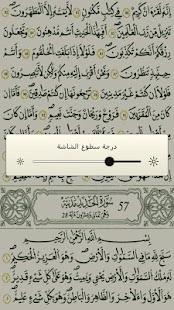 إِنَّهُۥ لَقُرْءَانٌ كَرِيمٌ فِى كِتَٰبٍ مَّكْنُونٍ لَّا يَمَسُّهُۥٓ إِلَّا ٱلْمُطَهَّرُونَ
تَنزِيلٌ مِّن رَّبِّ ٱلْعَٰلَمِينَ أَفَبِهَٰذَا ٱلْحَدِيثِ أَنتُم مُّدْهِنُونَ وَتَجْعَلُونَ
رِزْقَكُمْ أَنَّكُمْ تُكَذِّبُونَ فَلَوْلَآ إِذَا بَلَغَتِ ٱلْحُلْقُومَ وَأَنتُمْ
حِينَئِذٍ تَنظُرُونَ وَنَحْنُ أَقْرَبُ إِلَيْهِ مِنكُمْ وَلَٰكِن لَّا تُبْصِرُونَ
فَلَوْلَآ إِن كُنتُمْ غَيْرَ مَدِينِينَ تَرْجِعُونَهَآ إِن كُنتُمْ صَٰدِقِينَ
درجة سطوع الشاشة
سُورَةُ الْحَدِيدِ مَدَنِيَّة 57
بِسْمِ ٱللَّهِ ٱلرَّحْمَٰنِ ٱلرَّحِيمِ
سَبَّحَ لِلَّهِ مَا فِى ٱلسَّمَٰوَٰتِ وَٱلْأَرْضِ وَهُوَ ٱلْعَزِيزُ ٱلْحَكِيمُ
لَهُۥ مُلْكُ ٱلسَّمَٰوَٰتِ وَٱلْأَرْضِ يُحْىِۦ وَيُمِيتُ وَهُوَ عَلَىٰ كُلِّ شَىْءٍ قَدِيرٌ
هُوَ ٱلْأَوَّلُ وَٱلْءَاخِرُ وَٱلظَّٰهِرُ وَٱلْبَاطِنُ وَهُوَ بِكُلِّ شَىْءٍ عَلِيمٌ